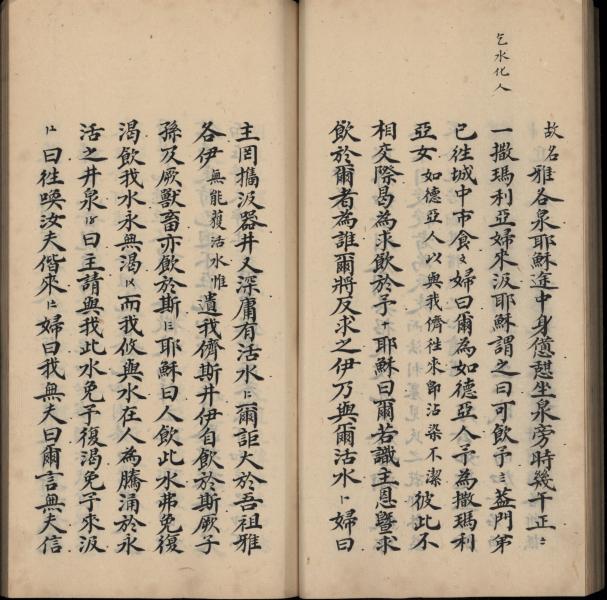 乞水化人
故名雅各泉耶穌途中身憊憇坐泉旁時幾午正
一撒瑪利亞婦來汲耶穌謂之曰可飲予葢門弟
已徃城中市食婦曰爾為如德亞人予為撒瑪利
亞女如德亞人以與我儕徃來卽沾染不潔彼此不
相交際曷為求飲於予耶穌曰爾若識主恩曁求
飲於爾者為誰爾將反求之伊乃與爾活水婦曰
主罔攜汲器井又深庸有活水爾詎大於吾祖雅
各伊無能獲活水惟遺我儕斯井伊自飲於斯厥子
孫及厥獸畜亦飲於斯耶穌曰人飲此水弗免復
渴飲我水永無渴而我攸與水在人為騰涌於永
活之井泉曰主請與我此水免予復渴免予來汲
曰徃喚汝夫偕來婦曰我無夫曰爾言無夫信